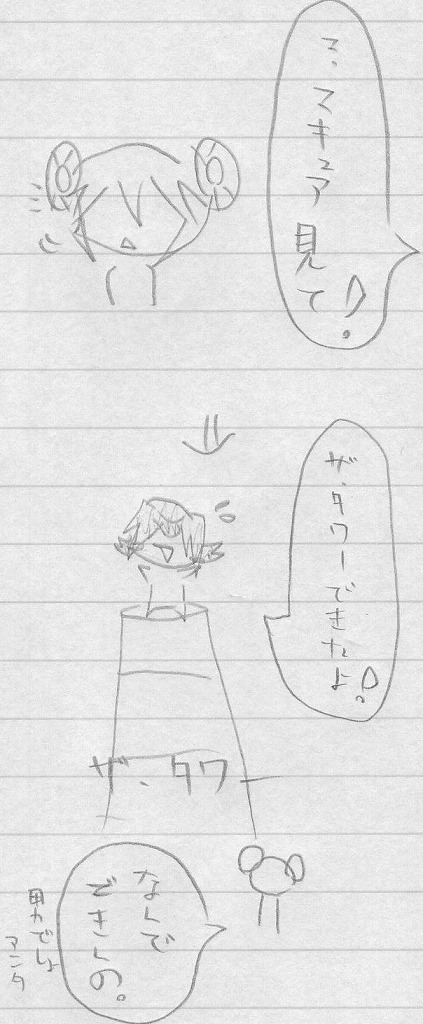 ミ・スキュア見て!
ザ・タワーできたよ!
ザ・タワー
なんで
できんの。
男でしょ
アンタ